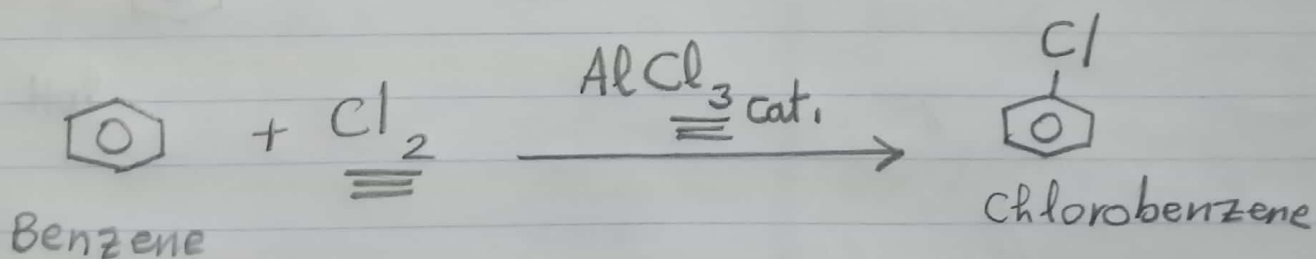 Cl
AlCl₃ cat.
+ Cl₂
Benzene
Chlorobenzene